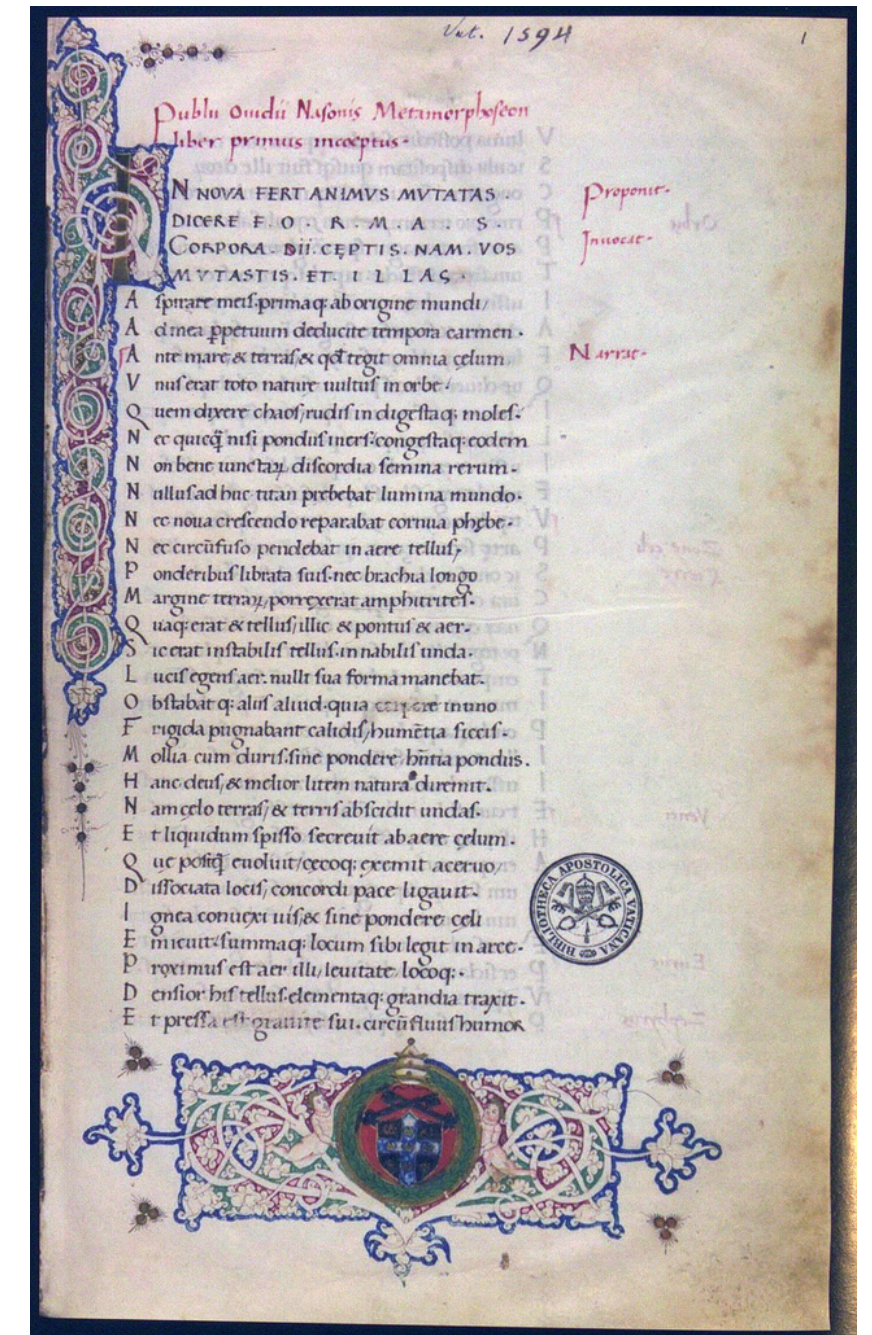 Vat. 1594
1
Publii Ouidii Nasonis Metamorphoseon
liber primus incęptus·
IN NOVA FERT ANIMVS MVTATAS
DICERE FO·R·M·A·S·
CORPORA· DII CĘPTIS· NAM· VOS
MVTASTIS· ET ILLAS,
Proponit·
Inuocat·
Aspirate meis·primaq; ab origine mundi/
Ad mea ꝑpetuum deducite tempora carmen·
Ante mare,& terras,& qđ tegit omnia cęlum
Narrat·
Vnus erat toto naturę uultus in orbe·
Quem dixere chaos/rudis in digestaq; moles·
Nec quicq̄ nisi pondus iners·congestaq; eodem
Non bene iunctaꝝ discordia semina rerum·
Nullus ad huc titan prebebat lumina mundo·
Nec noua crescendo reparabat cornua phębe·
Nec circūfuso pendebat in aere tellus/
Ponderibus librata suis·nec brachia longo
Margine terraꝝ porrexerat amphitrites·
Quaq; erat & tellus/illic & pontus & aer·
Sic erat instabilis tellus·innabilis unda·
Lucis egens aer·nulli sua forma manebat·
Obstabat q; aliis aliud·quia corpore in uno
Frigida pugnabant calidis/humētia siccis·
Mollia cum duris·sine pondere hñtia pondus·
Hanc deus,& melior litem natura diremit·
Nam cęlo terras,& terris abscidit undas·
Et liquidum spisso secreuit ab aere cęlum·
Quę postq̄ euoluit/cęcoq; exemit aceruo/
Dissociata locis/concordi pace ligauit·
Ignea conuexi uis,& sine pondere cęli
Emicuit·summaq; locum sibi legit in arce·
Proximus est aer illi/leuitate locoq;·
Densior his tellus·elementaq; grandia traxit·
Et pressa est grauite sui·circūfluus humor
BIBLIOTHECA APOSTOLICA VATICANA